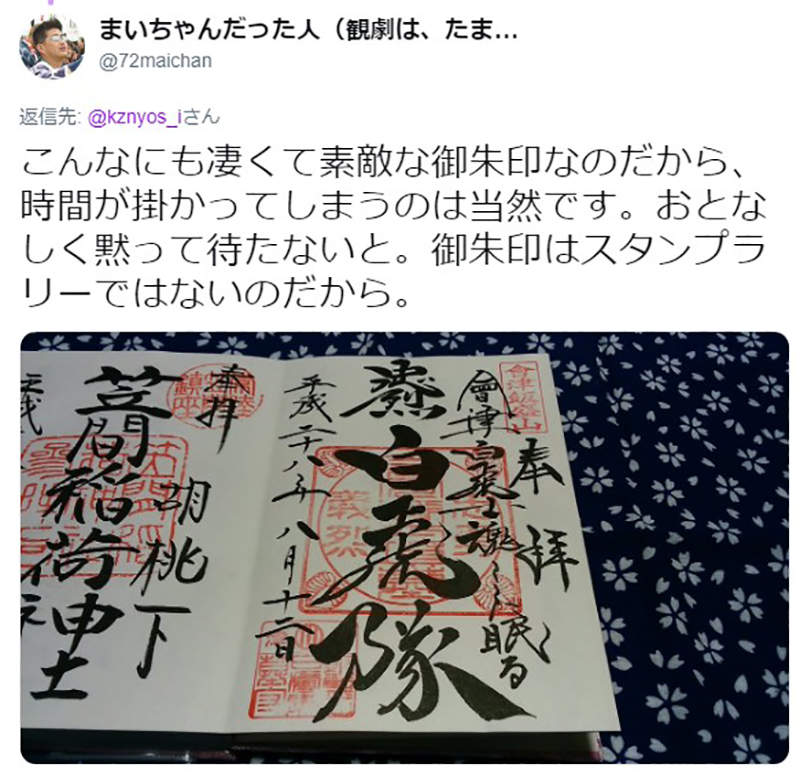 まいちゃんだった人（観劇は、たま...
@72maichan
返信先: @kznyos_iさん
こんなにも凄くて素敵な御朱印なのだから、
時間が掛かってしまうのは当然です。おとな
しく黙って待たないと。御朱印はスタンプラ
リーではないのだから。
會津飯盛山
奉拝
會津白虎士魂ここに眠る
白虎隊
平成二十八年八月十二日
奉拝
胡桃下
笠間稲荷神社